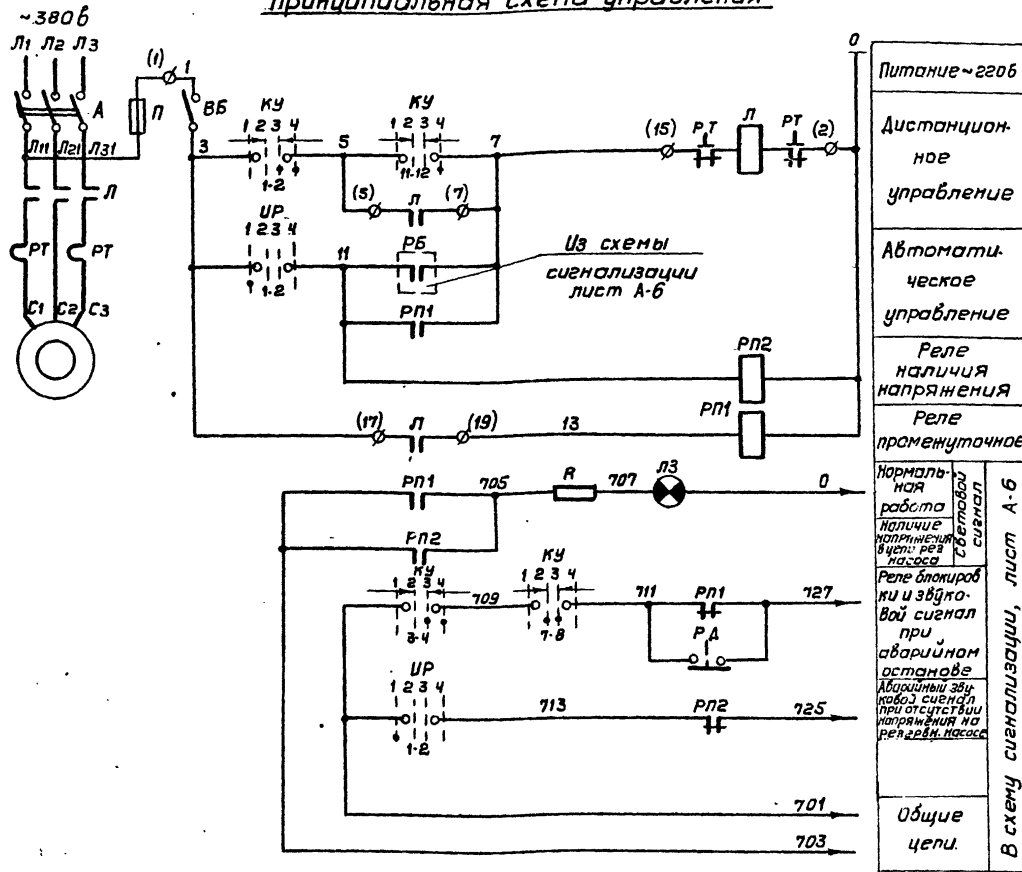 Принципиальная схема управления
~380в
Л1 Л2 Л3
А
Л11 Л21 Л31
П
(1) 1
ВБ
3
Л
РТ РТ
С1 С2 С3
КУ
1 2 3 4
1-2
5
КУ
1 2 3 4
11-12
7
(15)
РТ
Л
РТ
(2)
0
(5)
Л
(7)
ИР
1 2 3 4
1-2
11
РБ
Из схемы
сигнализации
лист А-6
РП1
РП2
РП1
(17)
Л
(19)
13
РП1
705
R
707
ЛЗ
0
РП2
КУ
1 2 3 4
3-4
709
КУ
1 2 3 4
7-8
711
РП1
727
РД
ИР
1 2 3 4
1-2
713
РП2
725
701
703
Питание ~220в
Дистанцион-
ное
управление
Автомати-
ческое
управление
Реле
наличия
напряжения
Реле
промежуточное
Нормаль-
ная
работа
Наличие
напряжения
в цепи рез
насоса
Световой
сигнал
Реле блокиров
ки и звуко-
вой сигнал
при
аварийном
останове
Аварийный зву-
ковой сигнал
при отсутствии
напряжения на
резервн. насосе
Общие
цепи.
В схему сигнализации, лист А-6